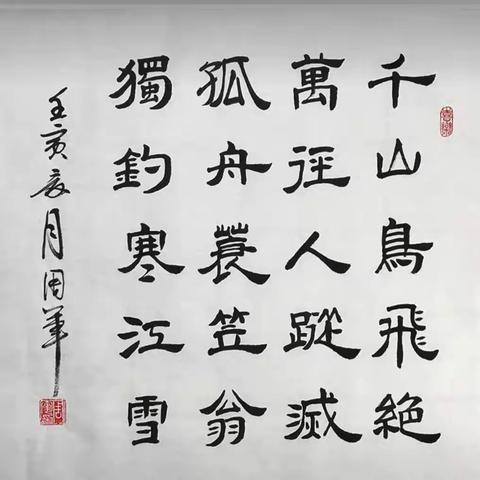 千山鳥飛絕
萬徑人蹤滅
孤舟蓑笠翁
獨釣寒江雪
壬寅亥月周軍